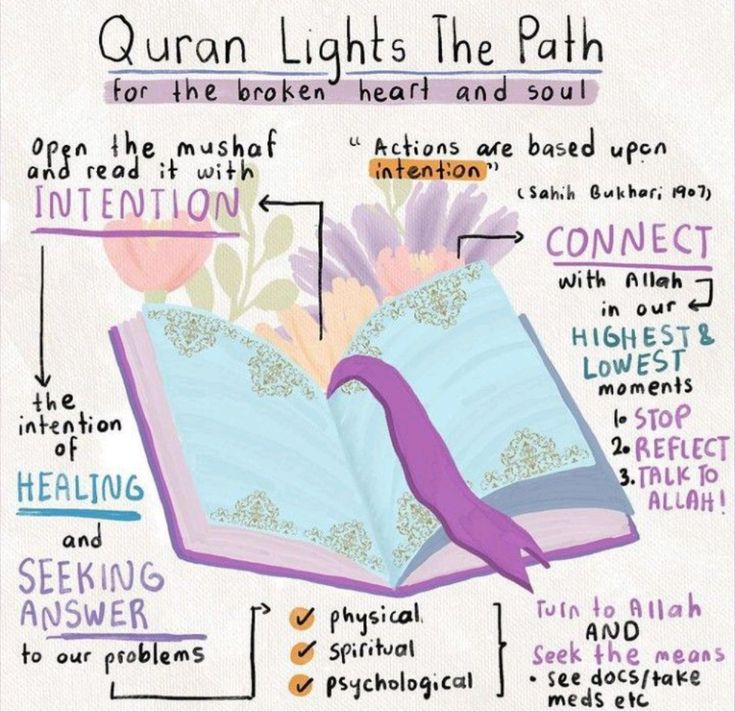 Quran Lights The Path
for the broken heart and soul
Open the mushaf
and read it with
INTENTION
the
intention
of
HEALING
and
SEEKING
ANSWER
to our problems
✓ physical
✓ spiritual
✓ psychological
Turn to Allah
AND
Seek the means
• see docs/take
meds etc
"Actions are based upon
intention"
(Sahih Bukhari 1907)
CONNECT
with Allah
in our
HIGHEST &
LOWEST
moments
1. STOP
2. REFLECT
3. TALK TO
ALLAH!